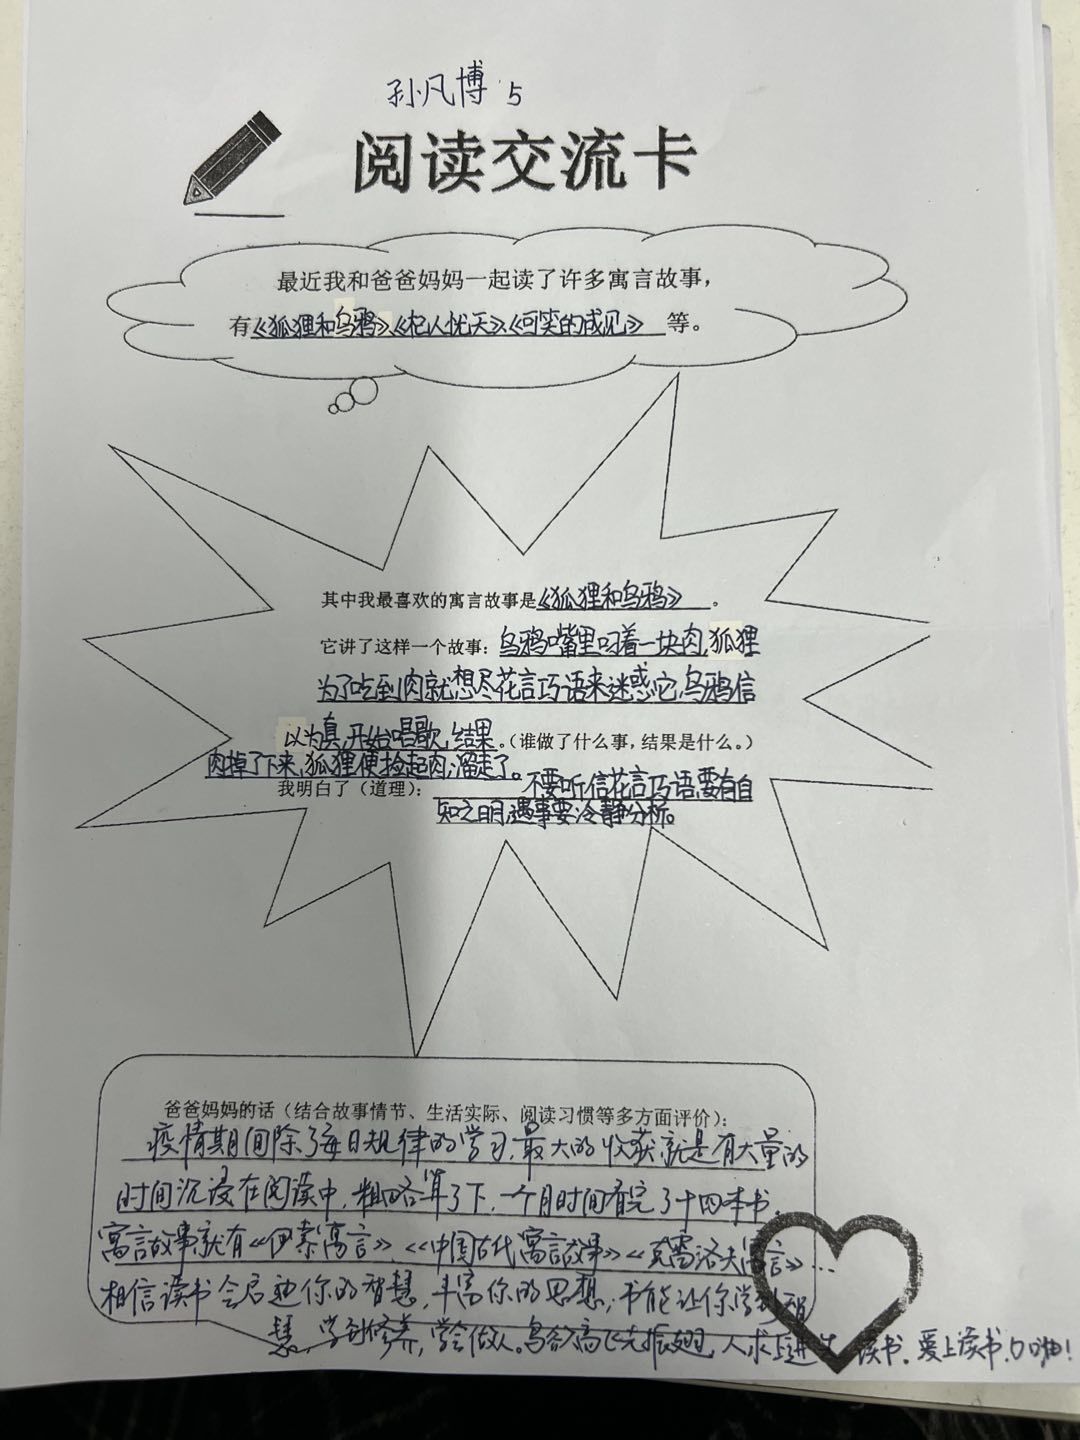 孙凡博 5
阅读交流卡
最近我和爸爸妈妈一起读了许多寓言故事，
有《狐狸和乌鸦》《杞人忧天》《可笑的成见》 等。
其中我最喜欢的寓言故事是《狐狸和乌鸦》 。
它讲了这样一个故事：乌鸦嘴里叼着一块肉,狐狸
为了吃到肉就想尽花言巧语来迷惑它,乌鸦信
以为真,开始唱歌,结果。（谁做了什么事，结果是什么。）
肉掉了下来,狐狸便捡起肉,溜走了。
我明白了（道理）： 不要听信花言巧语,要有自
知之明,遇事要冷静分析。
爸爸妈妈的话（结合故事情节、生活实际、阅读习惯等多方面评价）：
疫情期间除了每日规律的学习,最大的收获就是有大量的
时间沉浸在阅读中,粗略算了下,一个月时间看完了十四本书。
寓言故事就有《伊索寓言》、《中国古代寓言故事》《克雷洛夫寓言》...
相信读书会启迪你的智慧,丰富你的思想,书能让你学到智
慧、学到修养,学会做人。鸟欲高飞先振翅,人求上进先读书。爱上读书,加油!